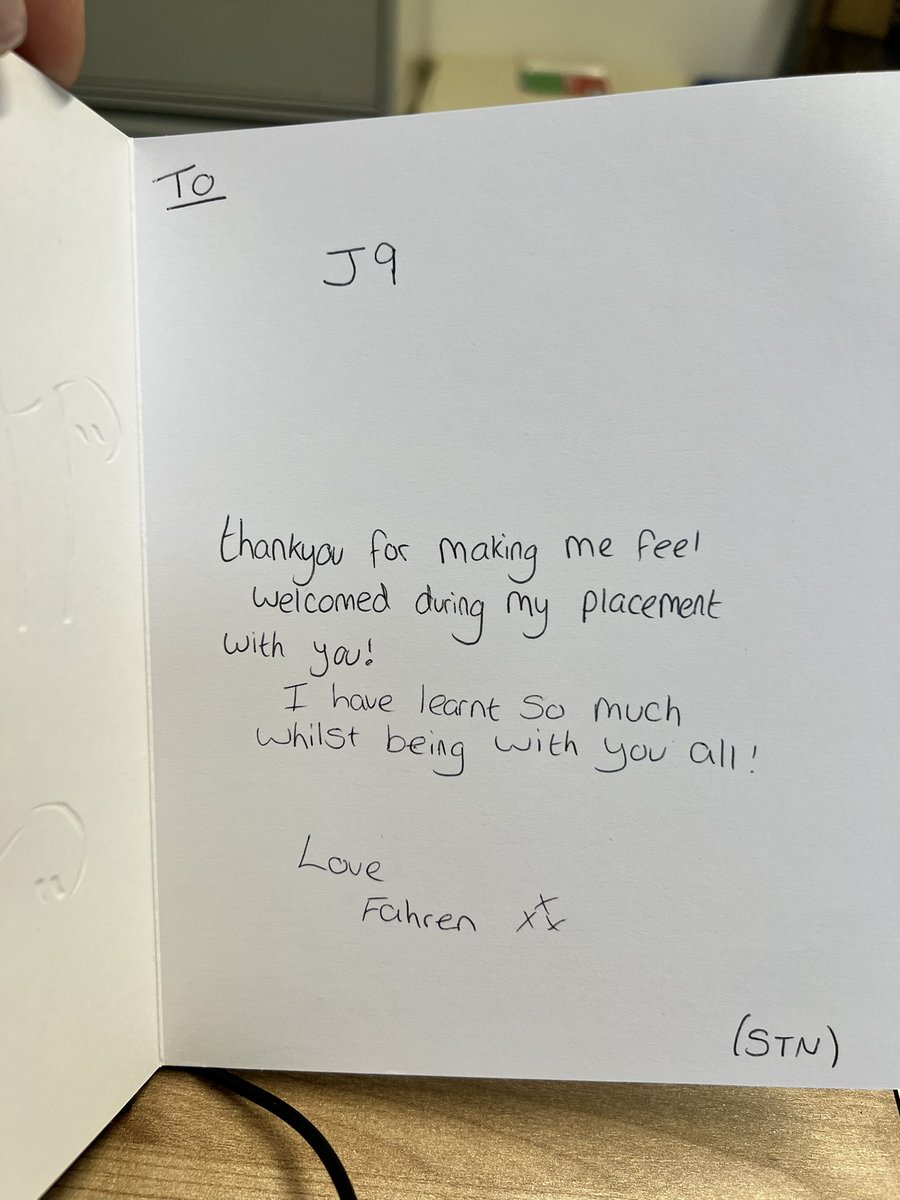 To
J9
thankyou for making me feel
welcomed during my placement
with you!
I have learnt so much
whilst being with you all!
Love
Fahren xxx
(STN)